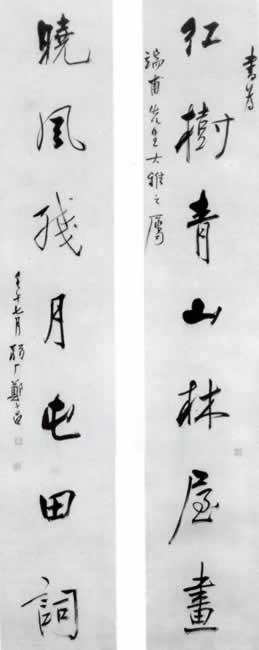 書為
甫先生大雅之屬
紅樹青山林屋畫
曉風殘月屯田詞
壬午七月鄭